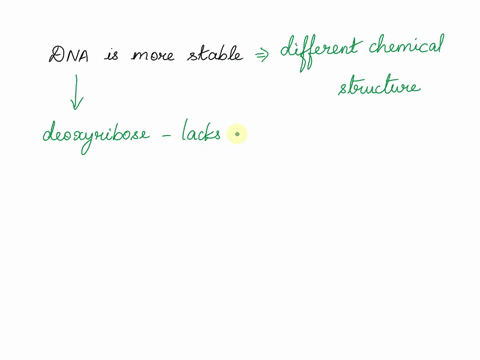 DNA is more stable ⇒ different chemical
structure
↓
deoxyribose - lacks